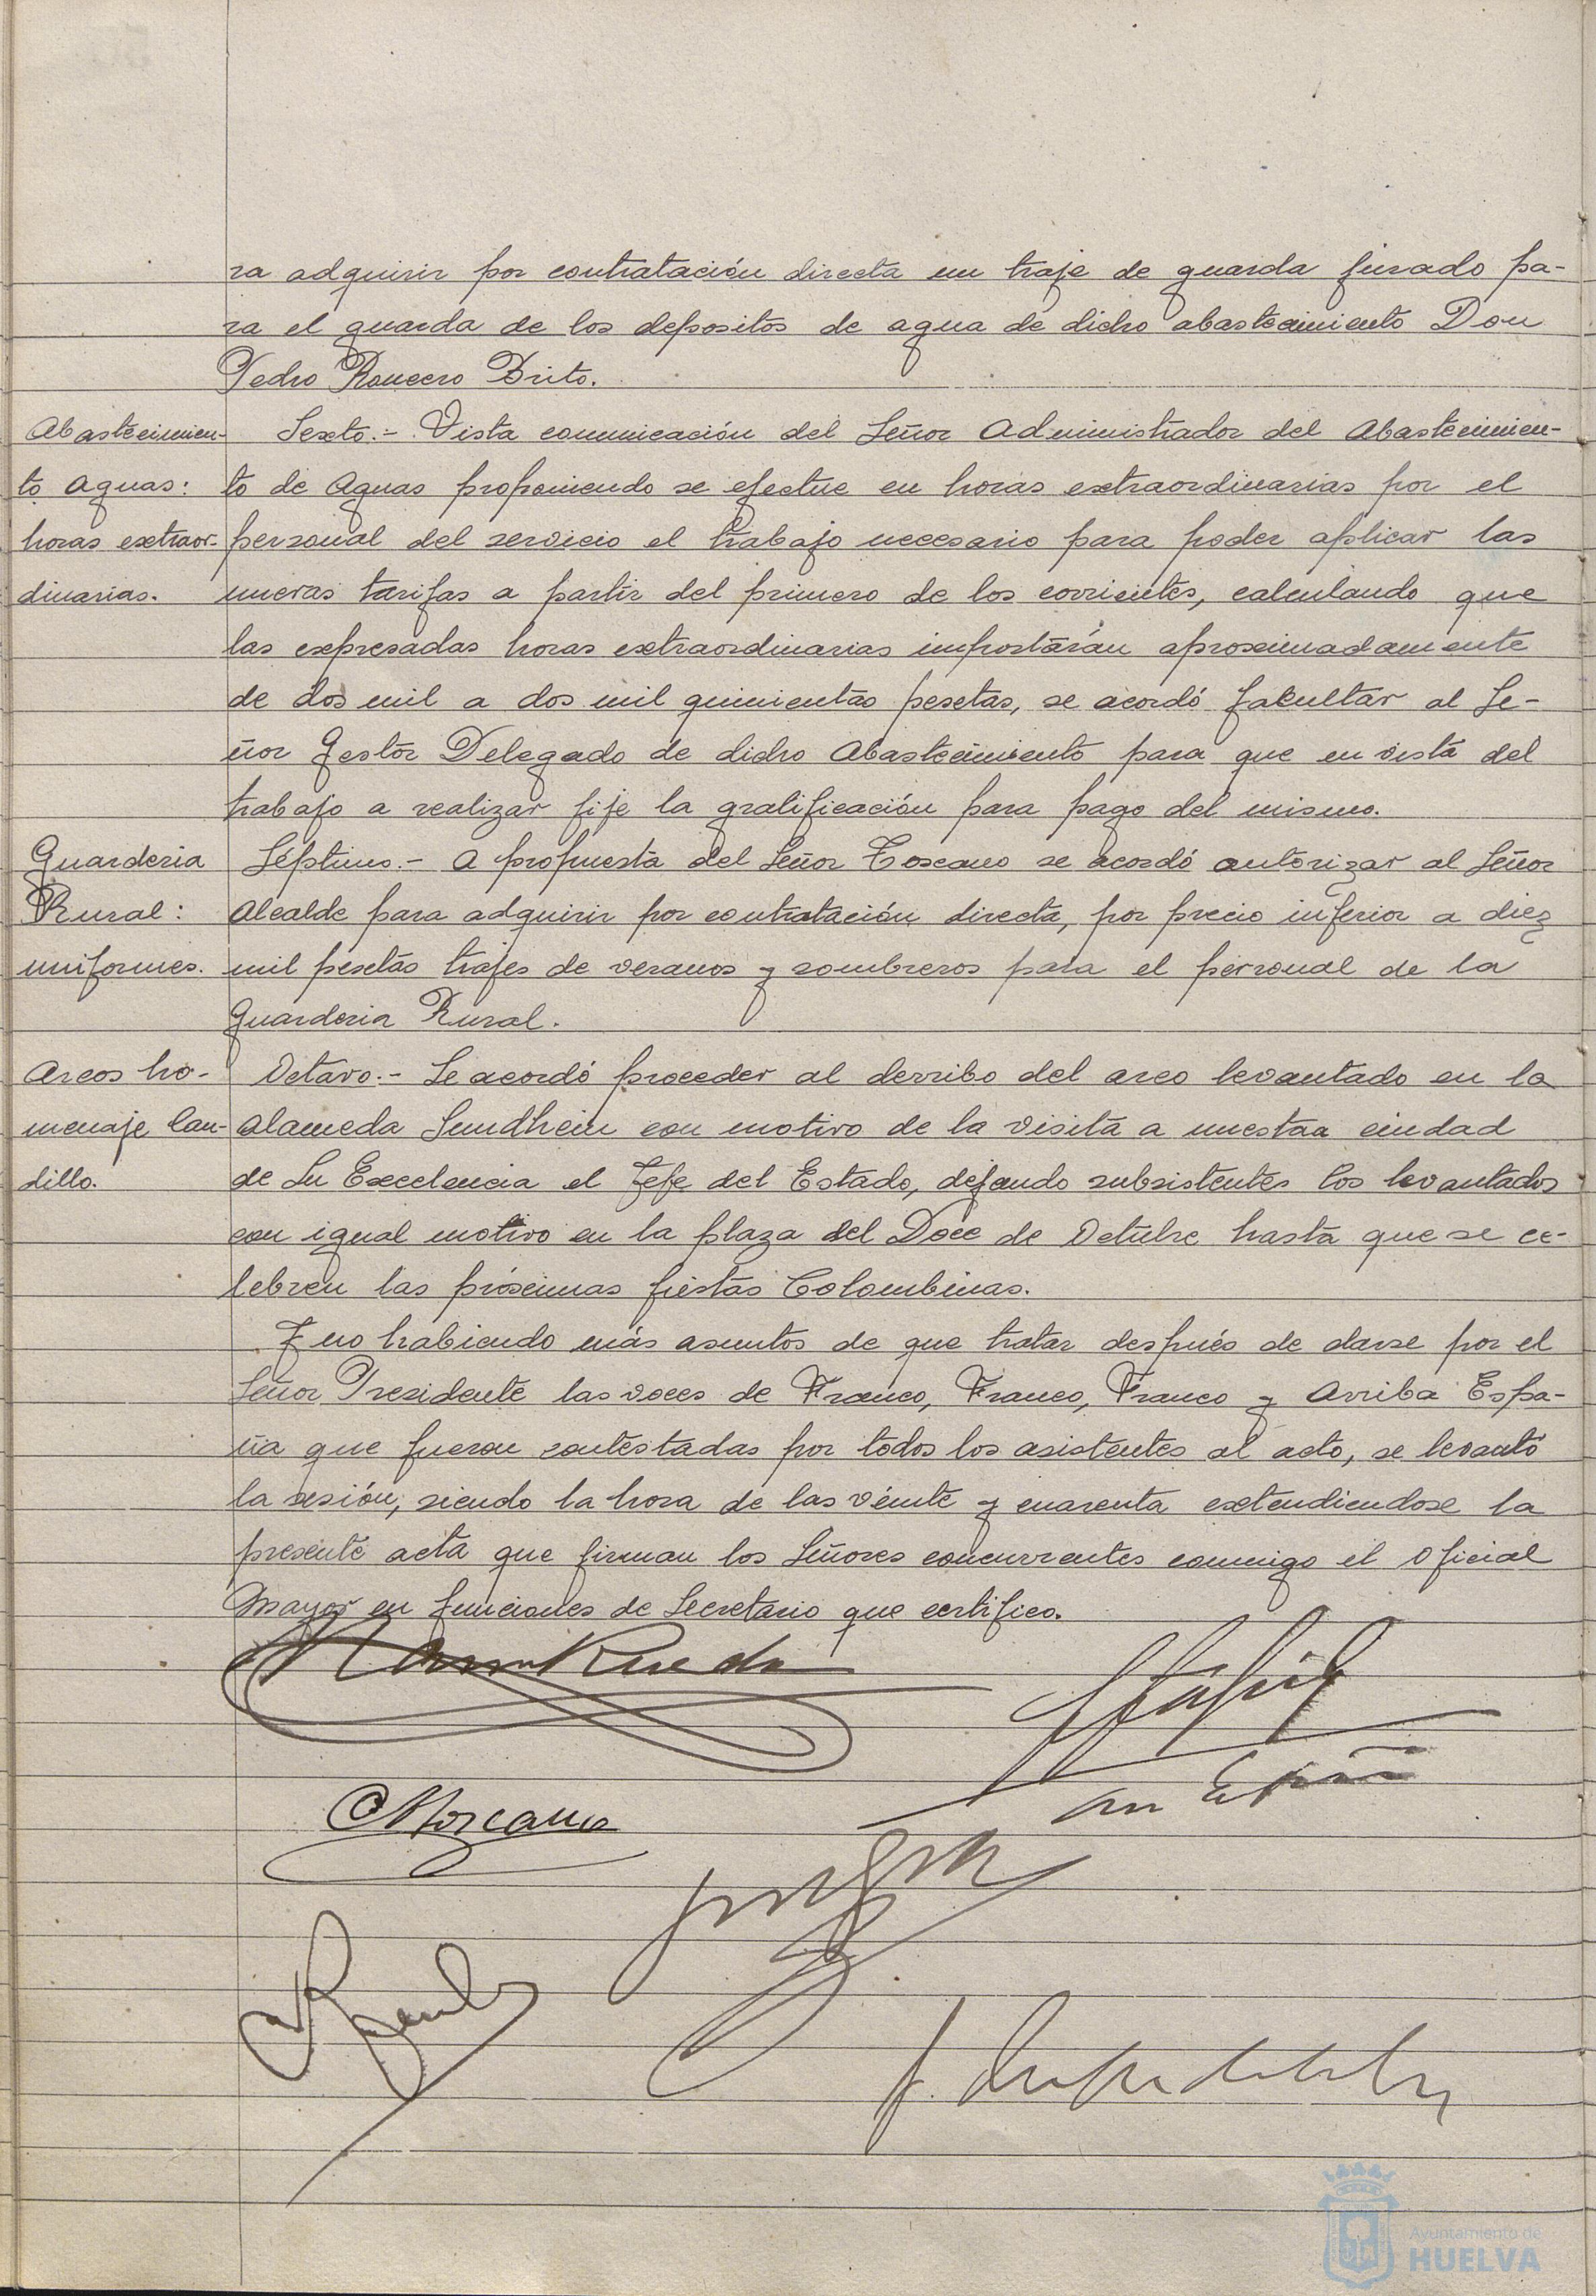 ra adquirir por contratación directa un traje de guarda jurado pa-
ra el guarda de los depositos de agua de dicho abastecimiento Don
Pedro Romero Brito.
Abastecimien-
to aguas:
horas extraor-
dinarias.
Sexto.- Vista comunicación del Señor Administrador del Abastecimien-
to de Aguas proponiendo se efectúe en horas extraordinarias por el
personal del servicio el trabajo necesario para poder aplicar las
nuevas tarifas a partir del primero de los corrientes, calculando que
las expresadas horas extraordinarias importarán aproximadamente
de dos mil a dos mil quinientas pesetas, se acordó facultar al Se-
ñor Gestor Delegado de dicho Abastecimiento para que en vista del
trabajo a realizar fije la gratificación para pago del mismo.
Guarderia
Rural:
uniformes.
Séptimo.- A propuesta del Señor Toscano se acordó autorizar al Señor
Alcalde para adquirir por contratación directa, por precio inferior a diez
mil pesetas trajes de veranos y sombreros para el personal de la
Guarderia Rural.
Arcos ho-
menaje Cau-
dillo.
Octavo.- Se acordó proceder al derribo del arco levantado en la
Alameda Sundhein con motivo de la visita a nuestra ciudad
de Su Excelencia el Jefe del Estado, dejando subsistentes los levantados
con igual motivo en la plaza del Doce de Octubre hasta que se ce-
lebren las próximas fiestas Colombinas.
Y no habiendo más asuntos de que tratar después de darse por el
Señor Presidente las voces de Franco, Franco, Franco y Arriba Espa-
ña que fueron contestadas por todos los asistentes al acto, se levantó
la sesión, siendo la hora de las veinte y cuarenta extendiendose la
presente acta que firman los Señores concurrentes conmigo el Oficial
Mayor en funciones de Secretario que certifico.
Rueda
Ayuntamiento de
HUELVA